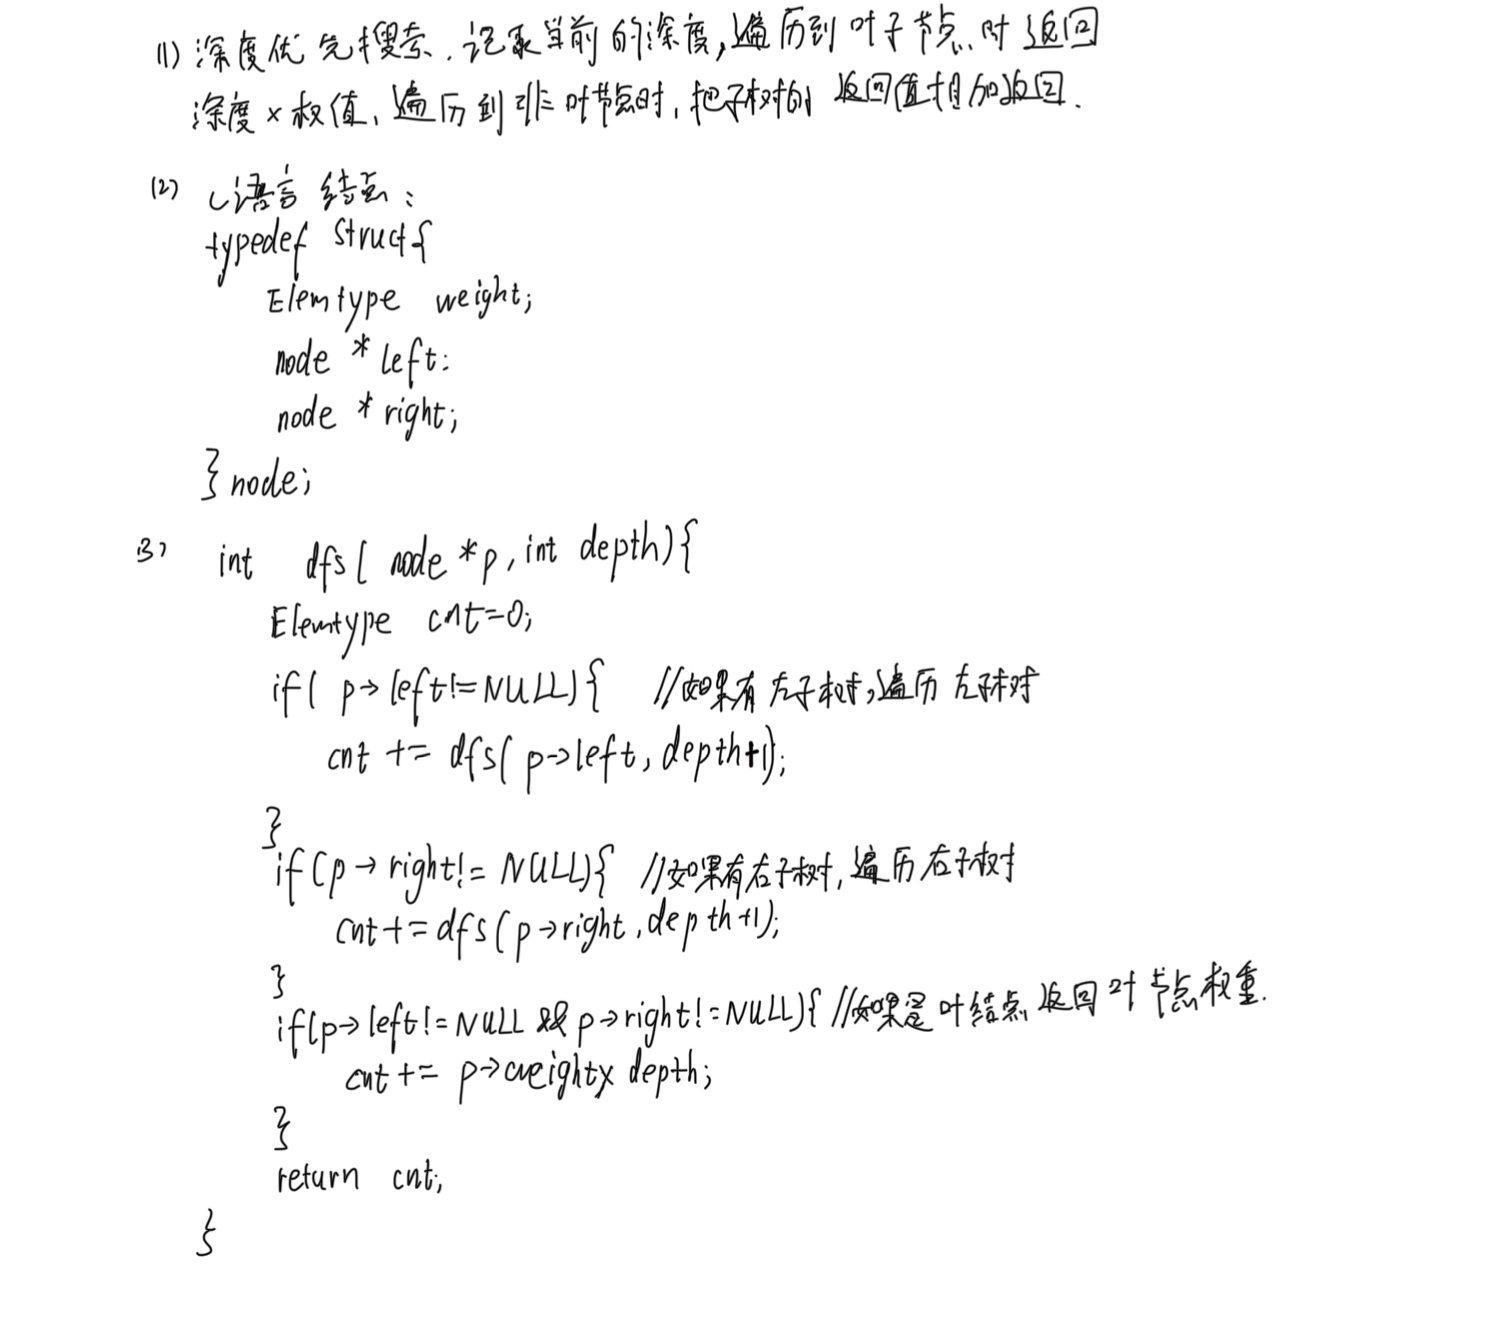 (1) 深度优先搜索.记录当前的深度,遍历到叶子节点时返回
深度×权值,遍历到非叶节点时,把子树的返回值相加返回.
(2) C语言结点:
typedef struct{
Elemtype weight;
node * left;
node * right;
} node;
(3) int dfs( node *p, int depth){
Elemtype cnt=0;
if( p->left!=NULL){ //如果有左子树,遍历左子树
cnt += dfs( p->left, depth+1);
}
if(p->right!=NULL){ //如果有右子树,遍历右子树
cnt+=dfs(p->right,depth+1);
}
if(p->left!=NULL && p->right!=NULL){ //如果是叶结点返回叶节点权重.
cnt += p->weight× depth;
}
return cnt;
}